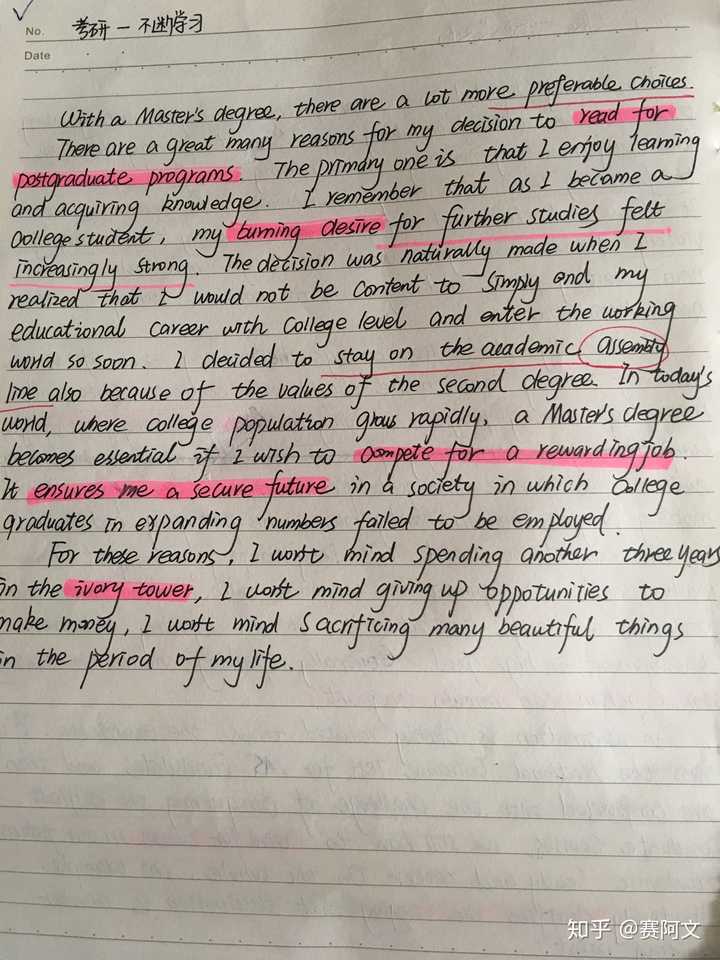 No. 考研 — 不断学习
Date
With a Master's degree, there are a lot more preferable choices.
There are a great many reasons for my decision to read for
postgraduate programs. The primary one is that I enjoy learning
and acquiring knowledge. I remember that as I became a
College student, my burning desire for further studies felt
increasingly strong. The decision was naturally made when I
realized that I would not be content to simply end my
educational career with College level and enter the working
world so soon. I decided to stay on the academic assembly
line also because of the values of the second degree. In today's
world, where college population grows rapidly, a Master's degree
becomes essential if I wish to compete for a rewarding job.
It ensures me a secure future in a society in which College
graduates in expanding numbers failed to be employed.
For these reasons, I won't mind spending another three years
in the ivory tower, I won't mind giving up oppotunities to
make money, I won't mind sacrificing many beautiful things
in the period of my life.
知乎 @赛阿文